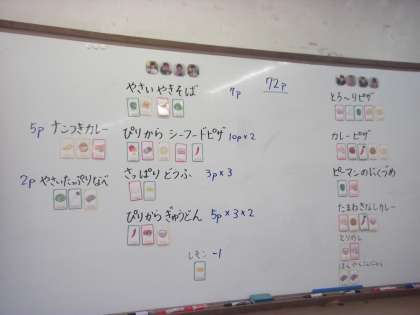 やさい やきそば 7p 72p
5p ナンつきカレー
ぴりから シーフードピザ 10p×2
さっぱり どうふ 3p×3
2p やさいたっぷりなべ
ぴりから ぎゅうどん 5p×3×2
レモン -1
とろ〜りピザ
カレーピザ
ピーマンのにくづめ
たまねぎなしカレー